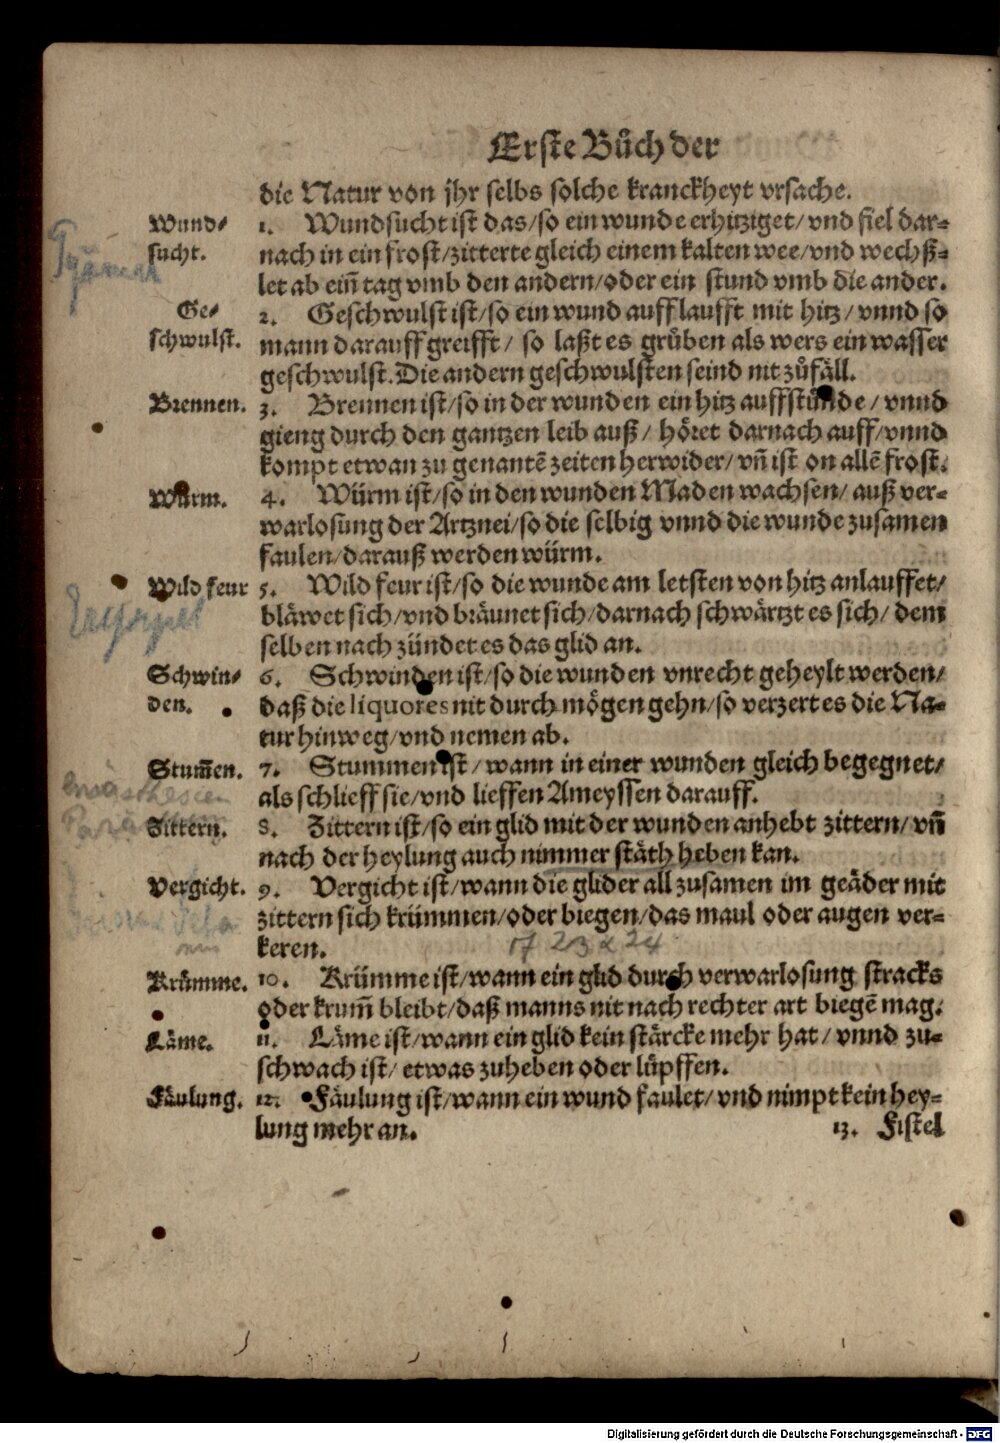 Erste Bůch der
die Natur von jhr selbs solche kranckheyt vrsache.
Wund/
sucht.
1. Wundsucht ist das/so ein wunde erhitziget/vnd fiel dar=
nach in ein frost/zitterte gleich einem kalten wee/vnd wechß=
let ab ein̄ tag vmb den andern/oder ein stund vmb die ander.
Ge/
schwulst.
2. Geschwulst ist/so ein wund aufflaufft mit hitz/vnnd so
mann darauff greifft/ so laßt es grüben als wers ein wasser
geschwulst. Die andern geschwulsten seind nit zůfäll.
Brennen.
3. Brennen ist/so in der wunden ein hitz auffstünde/vnnd
gieng durch den gantzen leib auß/ höret darnach auff/vnnd
kompt etwan zu genantē zeiten herwider/vn̄ ist on allē frost.
Würm.
4. Würm ist/so in den wunden Maden wachsen/ auß ver=
warlosung der Artznei/so die selbig vnnd die wunde zusamen
faulen/darauß werden würm.
Wild feur
5. Wild feur ist/so die wunde am letsten von hitz anlauffet/
bläwet sich/vnd bräunet sich/darnach schwärtzt es sich/ dem
selben nach zündet es das glid an.
Schwin/
den.
6. Schwinden ist/so die wunden vnrecht geheylt werden/
daß die liquores nit durch mögen gehn/so verzert es die Na=
tur hinweg/vnd nemen ab.
Stum̄en.
7. Stummen ist/wann in einer wunden gleich begegnet/
als schlieff sie/vnd lieffen Ameyssen darauff.
Zittern.
8. Zittern ist/so ein glid mit der wunden anhebt zittern/vn̄
nach der heylung auch nimmer stäth heben kan.
Vergicht.
9. Vergicht ist/wann die glider all zusamen im geäder mit
zittern sich krümmen/oder biegen/das maul oder augen ver=
keren.
17 23 & 24
Krümme.
10. Krümme ist/wann ein glid durch verwarlosung stracks
oder krum̄ bleibt/daß manns nit nach rechter art biegē mag.
Läme.
11. Läme ist/wann ein glid kein stärcke mehr hat/vnnd zu=
schwach ist/ etwas zuheben oder lüpffen.
Fäulung.
12. Fäulung ist/wann ein wund faulet/vnd nimpt kein hey=
lung mehr an.
13. Fistel
Digitalisierung gefördert durch die Deutsche Forschungsgemeinschaft - DFG